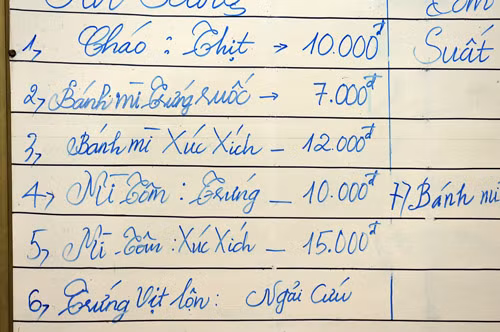 1, Cháo : Thịt → 10.000đ Suất
2, Bánh mì Trứng ruốc → 7.000đ
3, Bánh mì Xúc Xích - 12.000đ
4, Mì Tôm : Trứng - 10.000đ 7, Bánh mì
5, Mì Tôm : Xúc Xích - 15.000đ
6, Trứng Vịt lộn : Ngải Cứu